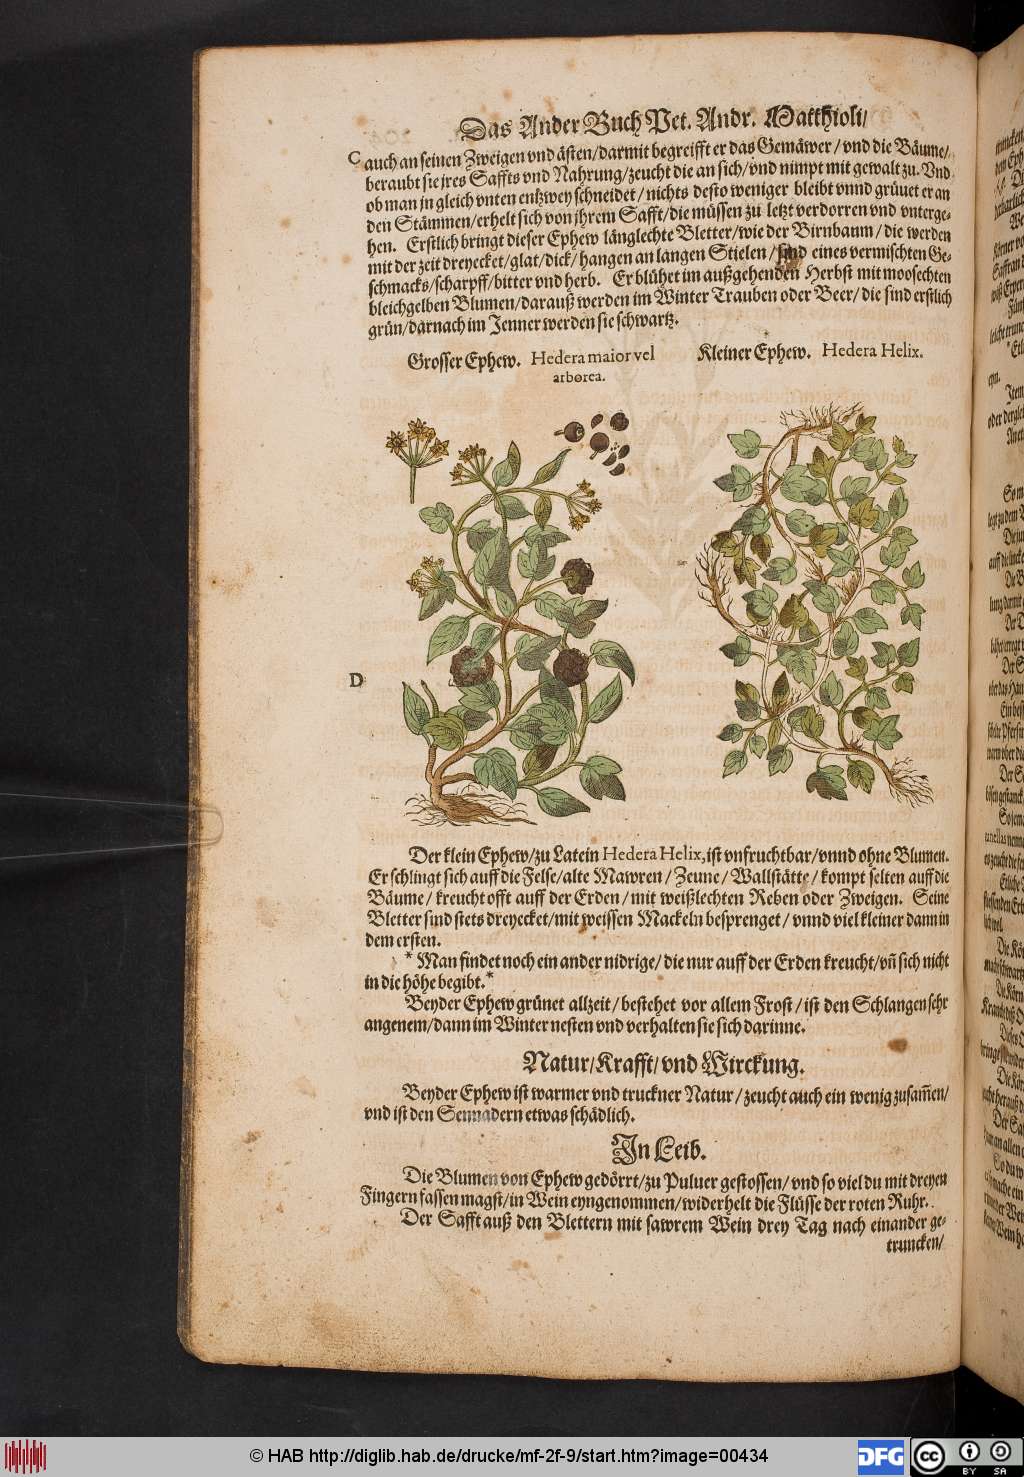 Das Ander Buch Pet. Andr. Matthioli/
C auch an seinen Zweigen vnd ästen/darmit begreifft er das Gemäwer/vnd die Bäume/
beraubt sie jres Saffts vnd Nahrung/zeucht die an sich/vnd nimpt mit gewalt zu. Vnd
ob man jn gleich vnten entzwey schneidet/nichts desto weniger bleibt vnnd grünet er an
den Stämmen/erhelt sich von jhrem Safft/die müssen zu letzt verdorren vnd vnterge-
hen. Erstlich bringt dieser Ephew länglechte Bletter/wie der Birnbaum/die werden
mit der zeit dreyecket/glat/dick/hangen an langen Stielen/sind eines vermischten Ge-
schmacks/scharpff/bitter vnd herb. Er blühet im außgehenden Herbst mit moosechten
bleichgelben Blumen/darauß werden im Winter Trauben oder Beer/die sind erstlich
grün/darnach im Jenner werden sie schwartz.
Grosser Ephew. Hedera maior vel
arborea.
Kleiner Ephew. Hedera Helix.
D
Der klein Ephew/zu Latein Hedera Helix, ist vnfruchtbar/vnnd ohne Blumen.
Er schlingt sich auff die Felse/alte Mawren/Zeune/Wallstätte/kompt selten auff die
Bäume/kreucht offt auff der Erden/mit weißlechten Reben oder Zweigen. Seine
Bletter sind stets dreyecket/mit weissen Mackeln besprenget/vnnd viel kleiner dann in
dem ersten.
* Man findet noch ein ander nidrige/die nur auff der Erden kreucht/vñ sich nicht
in die höhe begibt.*
Beyder Ephew grünet allzeit/bestehet vor allem Frost/ist den Schlangen sehr
angenem/dann im Winter nesten vnd verhalten sie sich darinne.
Natur/Krafft/vnd Wirckung.
Beyder Ephew ist warmer vnd truckner Natur/zeucht auch ein wenig zusam̃en/
vnd ist den Sennadern etwas schädlich.
In Leib.
Die Blumen von Ephew gedörrt/zu Puluer gestossen/vnd so viel du mit dreyen
Fingern fassen magst/in Wein eyngenommen/widerhelt die Flüsse der roten Ruhr.
Der Safft auß den Blettern mit sawrem Wein drey Tag nach einander ge-
truncken/
© HAB http://diglib.hab.de/drucke/mf-2f-9/start.htm?image=00434
DFG
cc
BY SA